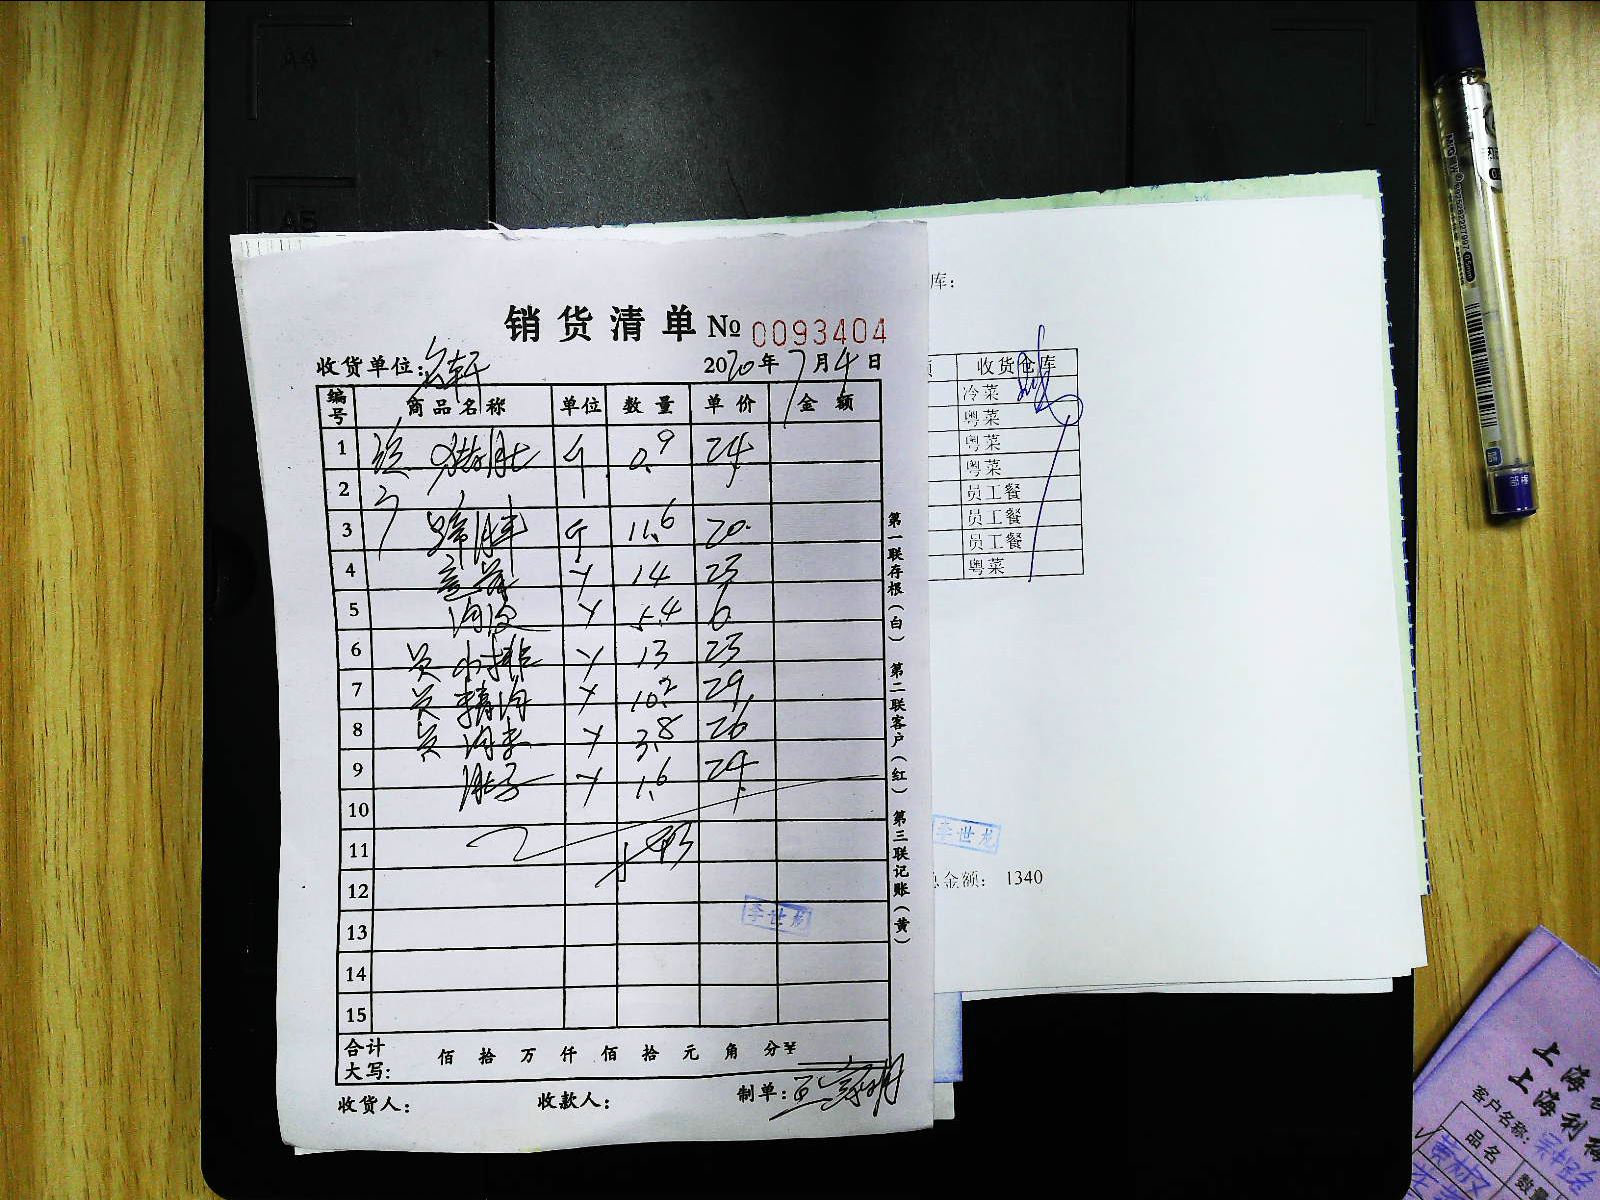 A4
A5
销货清单 № 0093404
收货单位：名轩 2020年7月4日
编号 商品名称 单位 数量 单价 金额
1 猪肚 个 0.9 24
2
3 蹄胖 个 11.6 20.
4 14 23
5 肉皮 5.4 6.
6 员 小排 13 23
7 员 精肉 10.2 29
8 员 肉末 3.8 26
9 肚子 1.6 24
10
11
12
13
14
15
李世龙
合计大写： 佰 拾 万 仟 佰 拾 元 角 分 ¥
收货人： 收款人： 制单：
第一联存根（白） 第二联客户（红） 第三联记账（黄）
库：
收货仓库
冷菜
粤菜
粤菜
粤菜
员工餐
员工餐
员工餐
粤菜
李世龙
总金额： 1340
上海
上海利
客户名称：
品名 数量
黄椒